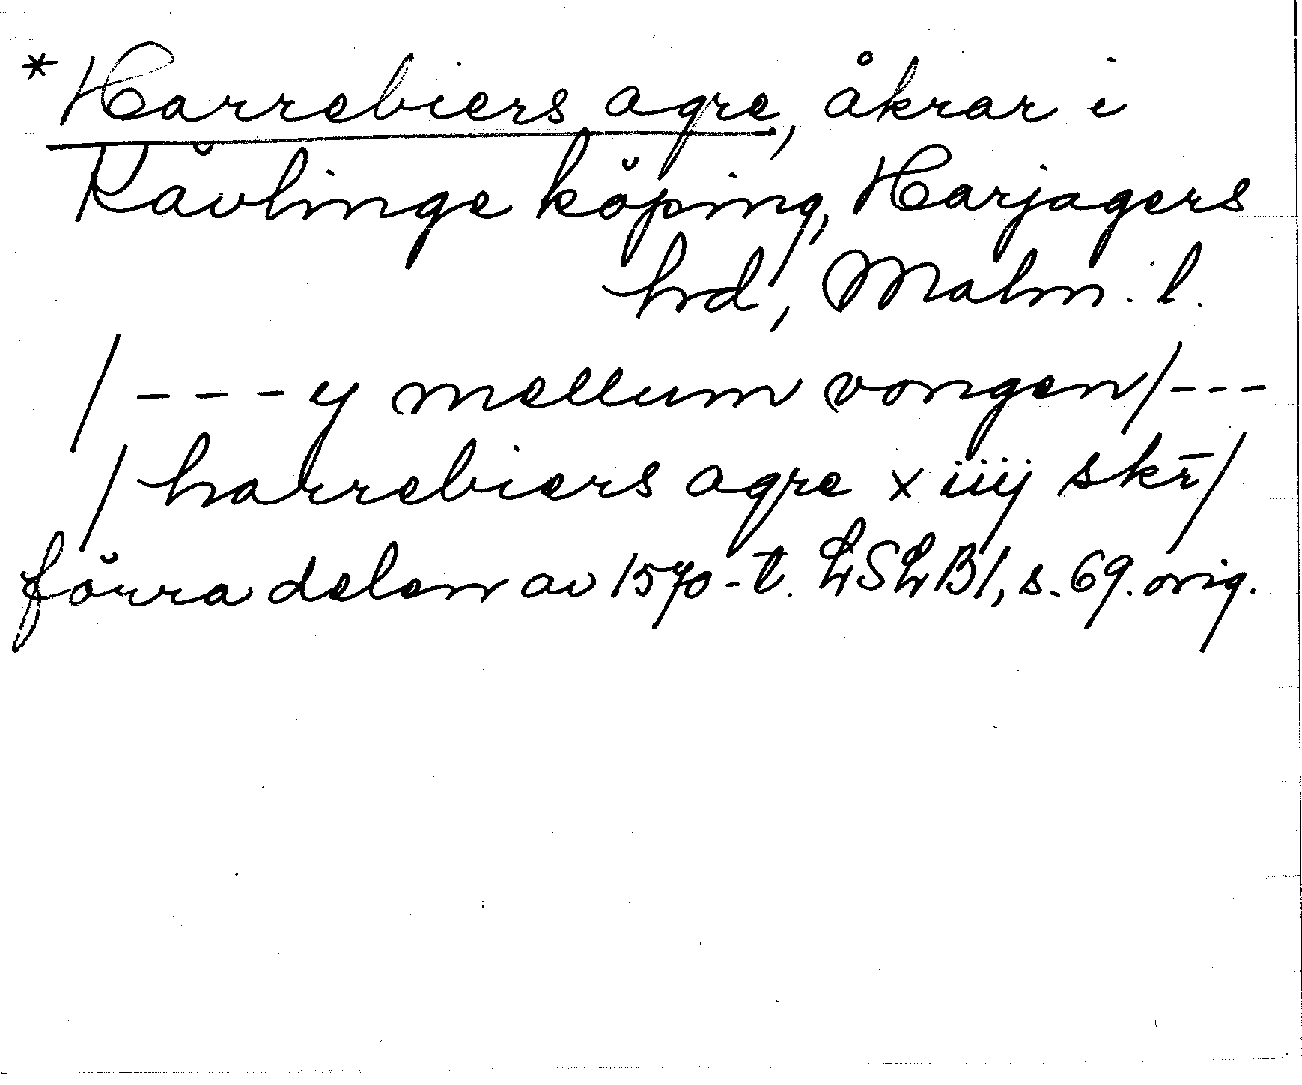 *Harrebiers agre, åkrar i
Kävlinge köping, Harjagers
hd, Malm. l.
/ - - - y mellum vongen / - - -
/ harrebiers agre x iiij skr̄ /
förra delen av 1570-t. LSLB1, s. 69. orig.